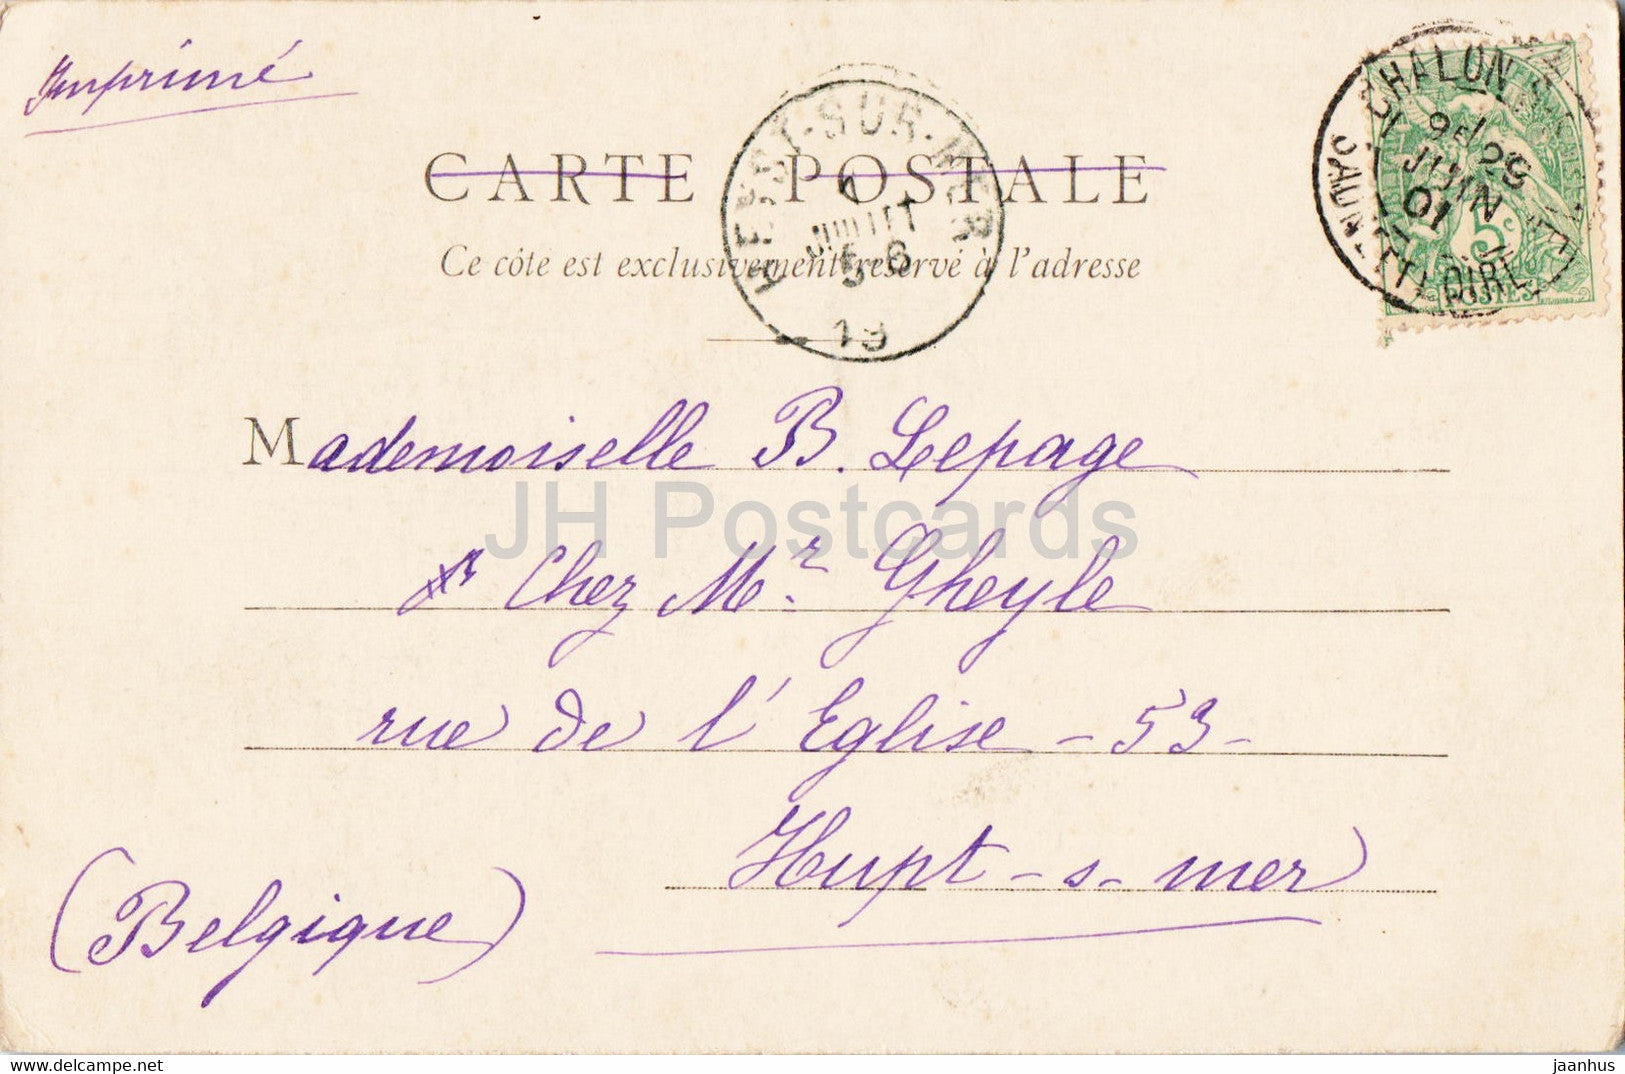 Imprimé
CARTE POSTALE
Ce côte est exclusivement réservé à l'adresse
HEYST-SUR-MER
1
JUILLET
5-6
19
CHALON S
SAONE-ET-LOIRE
JUIN
01
5c
POSTES
Mademoiselle B. Lepage
JH Postcards
Chez Mr. Gheyle
rue de l'Eglise - 53 -
Hupt-s-mer
(Belgique)
www.delcampe.net
jaanhus